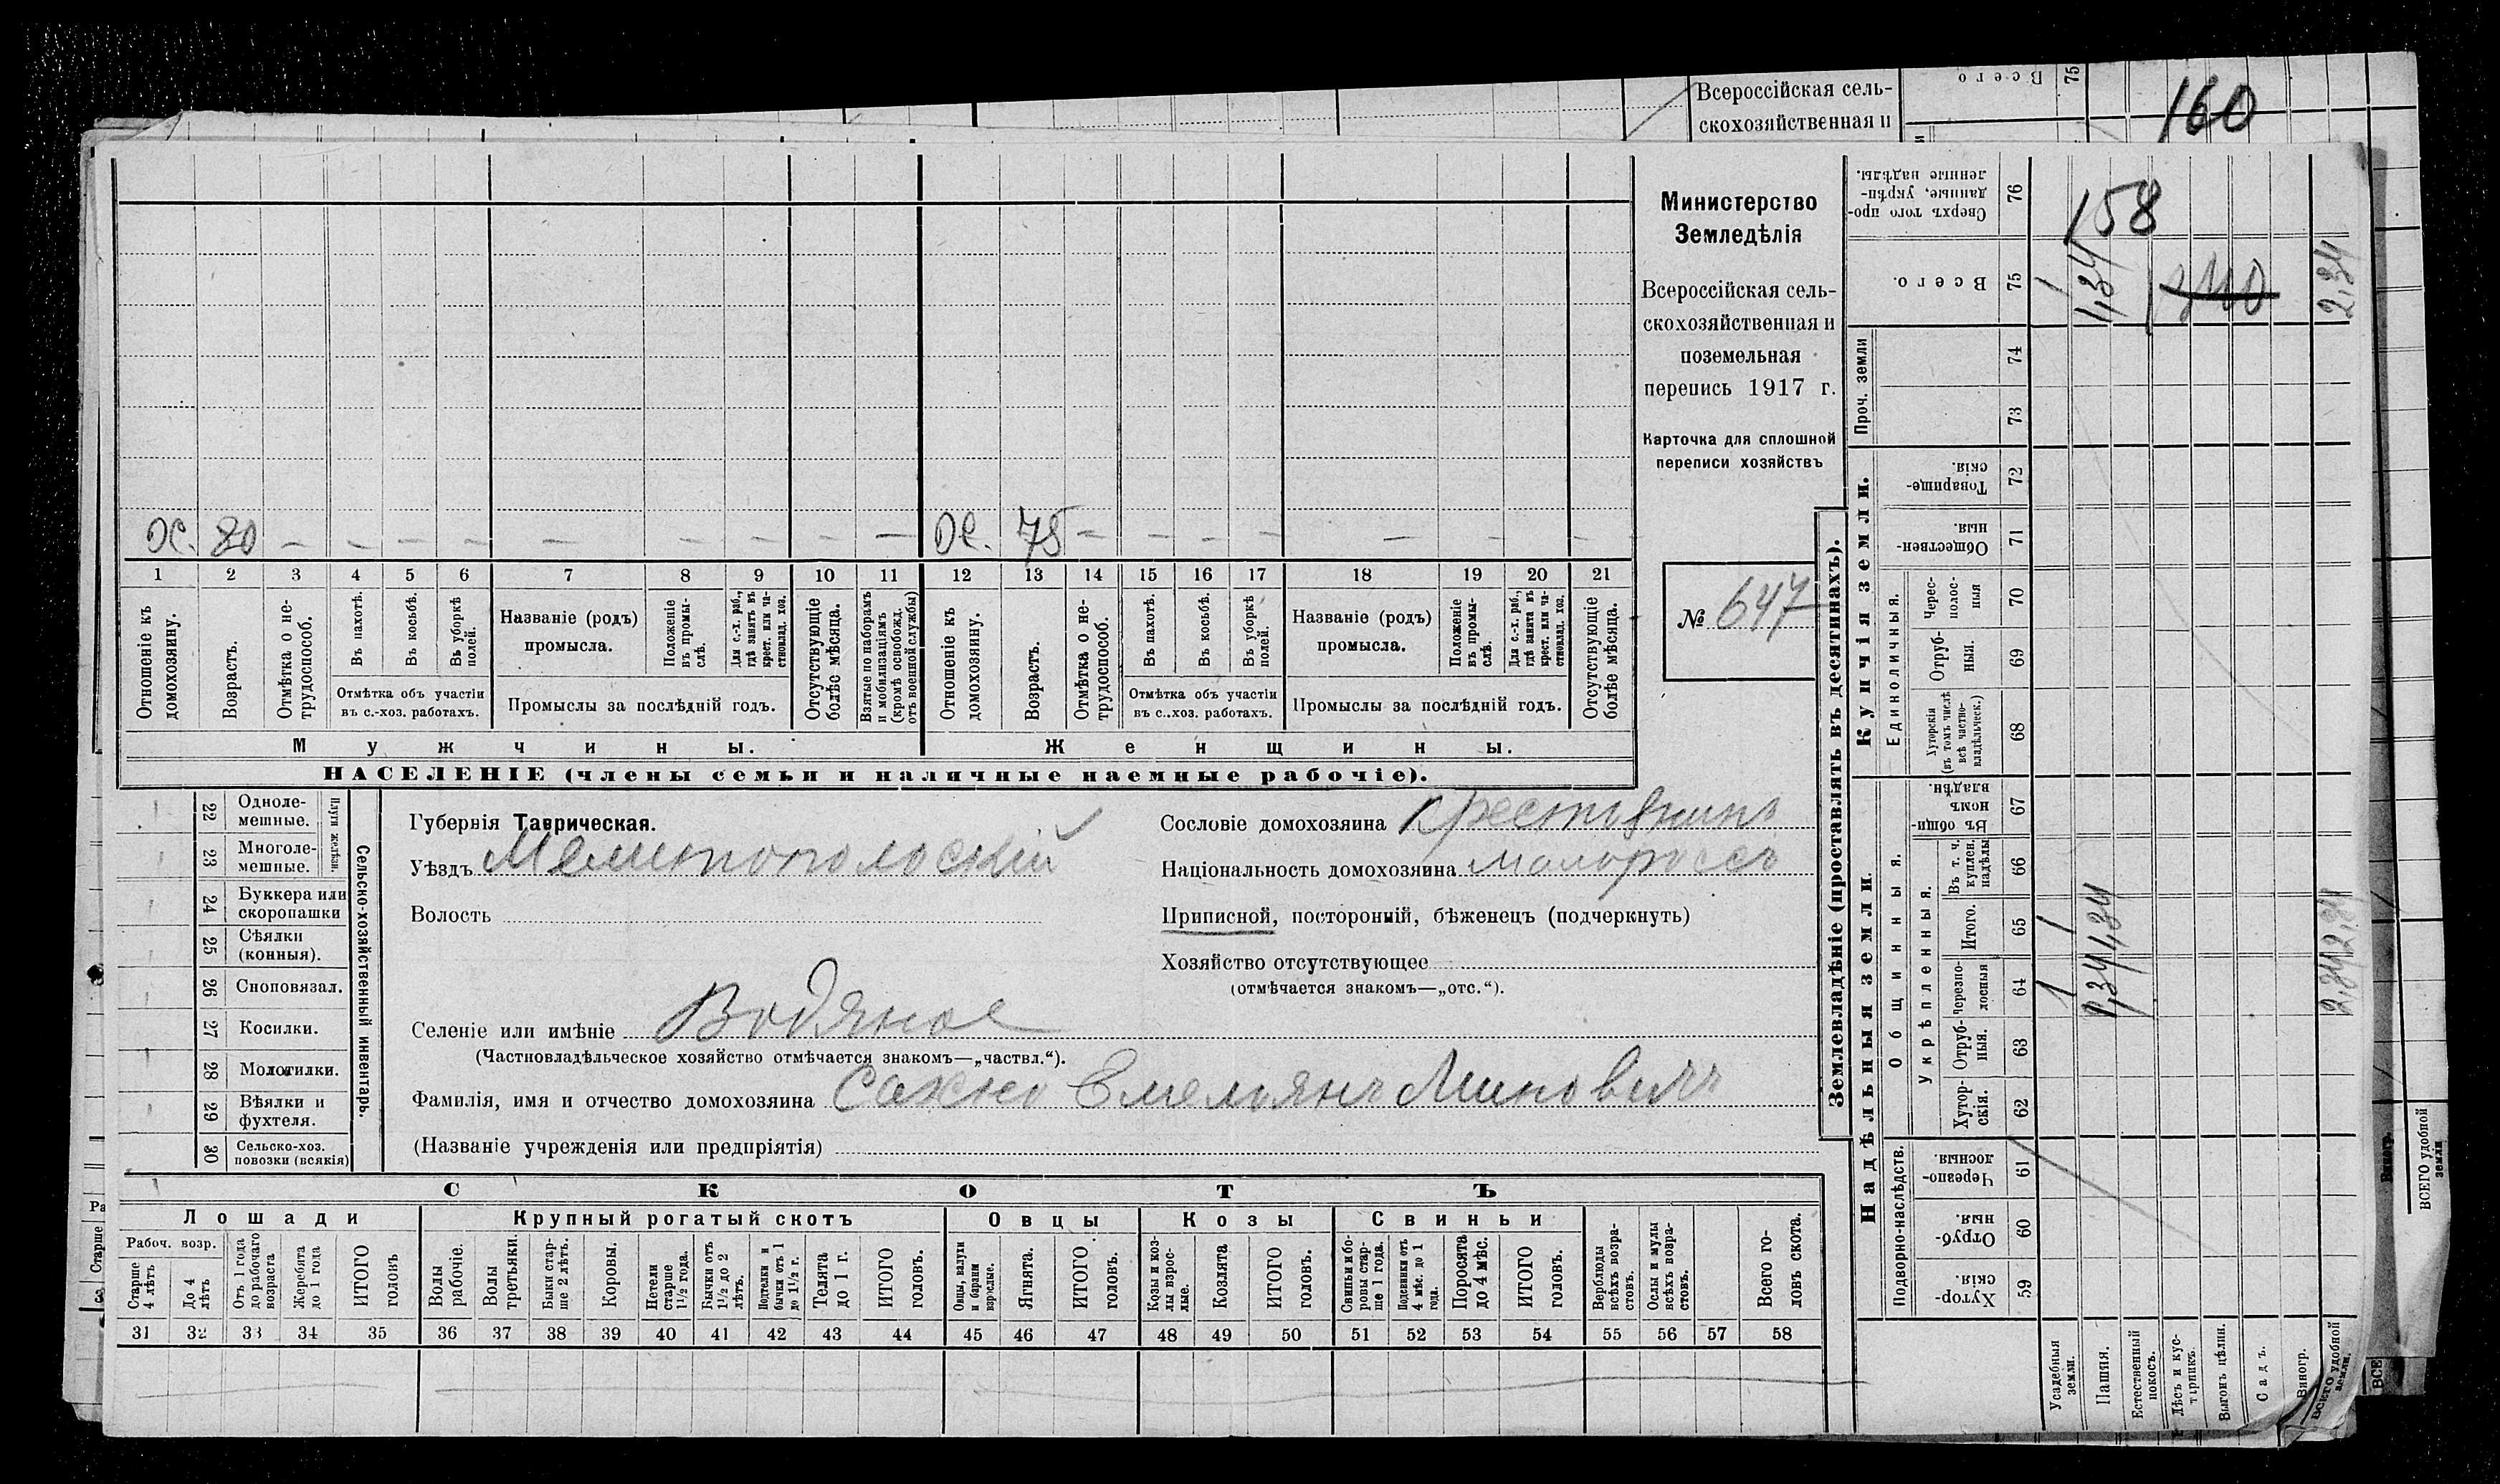 Всероссійская сель-
скохозяйственная и
Всего
75
160
Министерство
Земледѣлія
Всероссійская сель-
скохозяйственная и
поземельная
перепись 1917 г.
Карточка для сплошной
переписи хозяйствъ
№ 647
80 — — — — — — — — —
75 — — — — — — — —
1 2 3 4 5 6 7 8 9 10 11 12 13 14 15 16 17 18 19 20 21
Отношеніе къ домохозяину.
Возрастъ.
Отмѣтка о не-трудоспособ.
Въ пахотѣ.
Въ косьбѣ.
Въ уборкѣ полей.
Отмѣтка объ участіи
въ с.-хоз. работахъ.
Названіе (родъ)
промысла.
Положеніе въ промы-слѣ.
Для с.-х. раб., гдѣ занятъ въ крест. или ча-стновлад. хоз.
Промыслы за послѣдній годъ.
Отсутствующіе болѣе мѣсяца.
Взятые по наборамъ и мобилизаціямъ (кромѣ освобожд. отъ военной службы)
Отношеніе къ домохозяину.
Возрастъ.
Отмѣтка о не-трудоспособ.
Въ пахотѣ.
Въ косьбѣ.
Въ уборкѣ полей.
Отмѣтка объ участіи
въ с.-хоз. работахъ.
Названіе (родъ)
промысла.
Положеніе въ промы-слѣ.
Для с.-х. раб., гдѣ занята въ крест. или ча-стновлад. хоз.
Промыслы за послѣдній годъ.
Отсутствующіе болѣе мѣсяца.
Мужчины.
Женщины.
НАСЕЛЕНІЕ (члены семьи и наличные наемные рабочіе).
22 Одноле-мешные.
23 Многоле-мешные.
Плуги желѣзн.
24 Буккера или скоропашки
25 Сѣялки (конныя).
26 Сноповязал.
27 Косилки.
28 Молотилки.
29 Вѣялки и фухтеля.
30 Сельско-хоз. повозки (всякія)
Сельско-хозяйственный инвентарь.
Губернія Таврическая.
Уѣздъ Мелитопольскій
Волость
Селеніе или имѣніе Водяное
(Частновладѣльческое хозяйство отмѣчается знакомъ—„частвл.“).
Фамилія, имя и отчество домохозяина Сахно Емельянъ Миновичъ
(Названіе учрежденія или предпріятія)
Сословіе домохозяина крестьянинъ
Національность домохозяина малороссъ
Приписной, посторонній, бѣженецъ (подчеркнуть)
Хозяйство отсутствующее
(отмѣчается знакомъ—„отс.“).
СКОТЪ
Лошади
Крупный рогатый скотъ
Овцы
Козы
Свиньи
Рабоч. возр.
Старше 4 лѣтъ
До 4 лѣтъ
Отъ 1 года до рабочаго возраста
Жеребята до 1 года
ИТОГО головъ
Волы рабочіе.
Волы третьяки.
Быки стар-ше 2 лѣтъ.
Коровы.
Нетели старше 1½ года.
Бычки отъ 1½ до 2 лѣтъ.
Подтелки и бычки отъ 1 до 1½ г.
Телята до 1 г.
ИТОГО головъ.
Овцы, валухи и бараны взрослые.
Ягнята.
ИТОГО головъ.
Козы и коз-лы взрос-лые.
Козлята
ИТОГО головъ.
Свиньи и бо-ровы стар-ше 1 года.
Подсвинки отъ 4 мѣс. до 1 года.
Поросята до 4 мѣс.
ИТОГО головъ.
Верблюды всѣхъ возра-стовъ.
Ослы и мулы всѣхъ возра-стовъ.
Всего го-ловъ скота.
31 32 33 34 35 36 37 38 39 40 41 42 43 44 45 46 47 48 49 50 51 52 53 54 55 56 57 58
Землевладѣніе (проставлять въ десятинахъ).
Надѣльныя земли.
Купчія земли.
Проч. земли
Подворно-наслѣдств.
Общинныя.
Укрѣпленныя.
Единоличныя.
Сверхъ того про-данные, укрѣп-ленные надѣлы. 76
158
Всего. 75 1 1,34 2,34
74
73
Товарище-скія. 72
Обществен-ныя. 71
Черес-полос-ныя 70
Отруб-ныя. 69
Хуторскія (въ томъ числѣ всѣ частно-владѣльческ.) 68
Въ общи-номъ владѣн. 67
Въ т. ч. куплен. надѣлы 66
Итого. 65 1 1,34 2,34
Черезпо-лосныя 64 1 1,34 2,34
Отруб-ныя. 63
Хутор-скія. 62
Черезпо-лосныя. 61
Отруб-ныя. 60
Хутор-скія. 59
Усадебныя земли.
Пашня.
Естественный покосъ.
Лѣсъ и кус-тарникъ.
Выгонъ цѣлин.
Садъ.
Виногр.
Всего удобной земли.
Виногр.
ВСЕГО удобной земли
ВСЕ
Старше